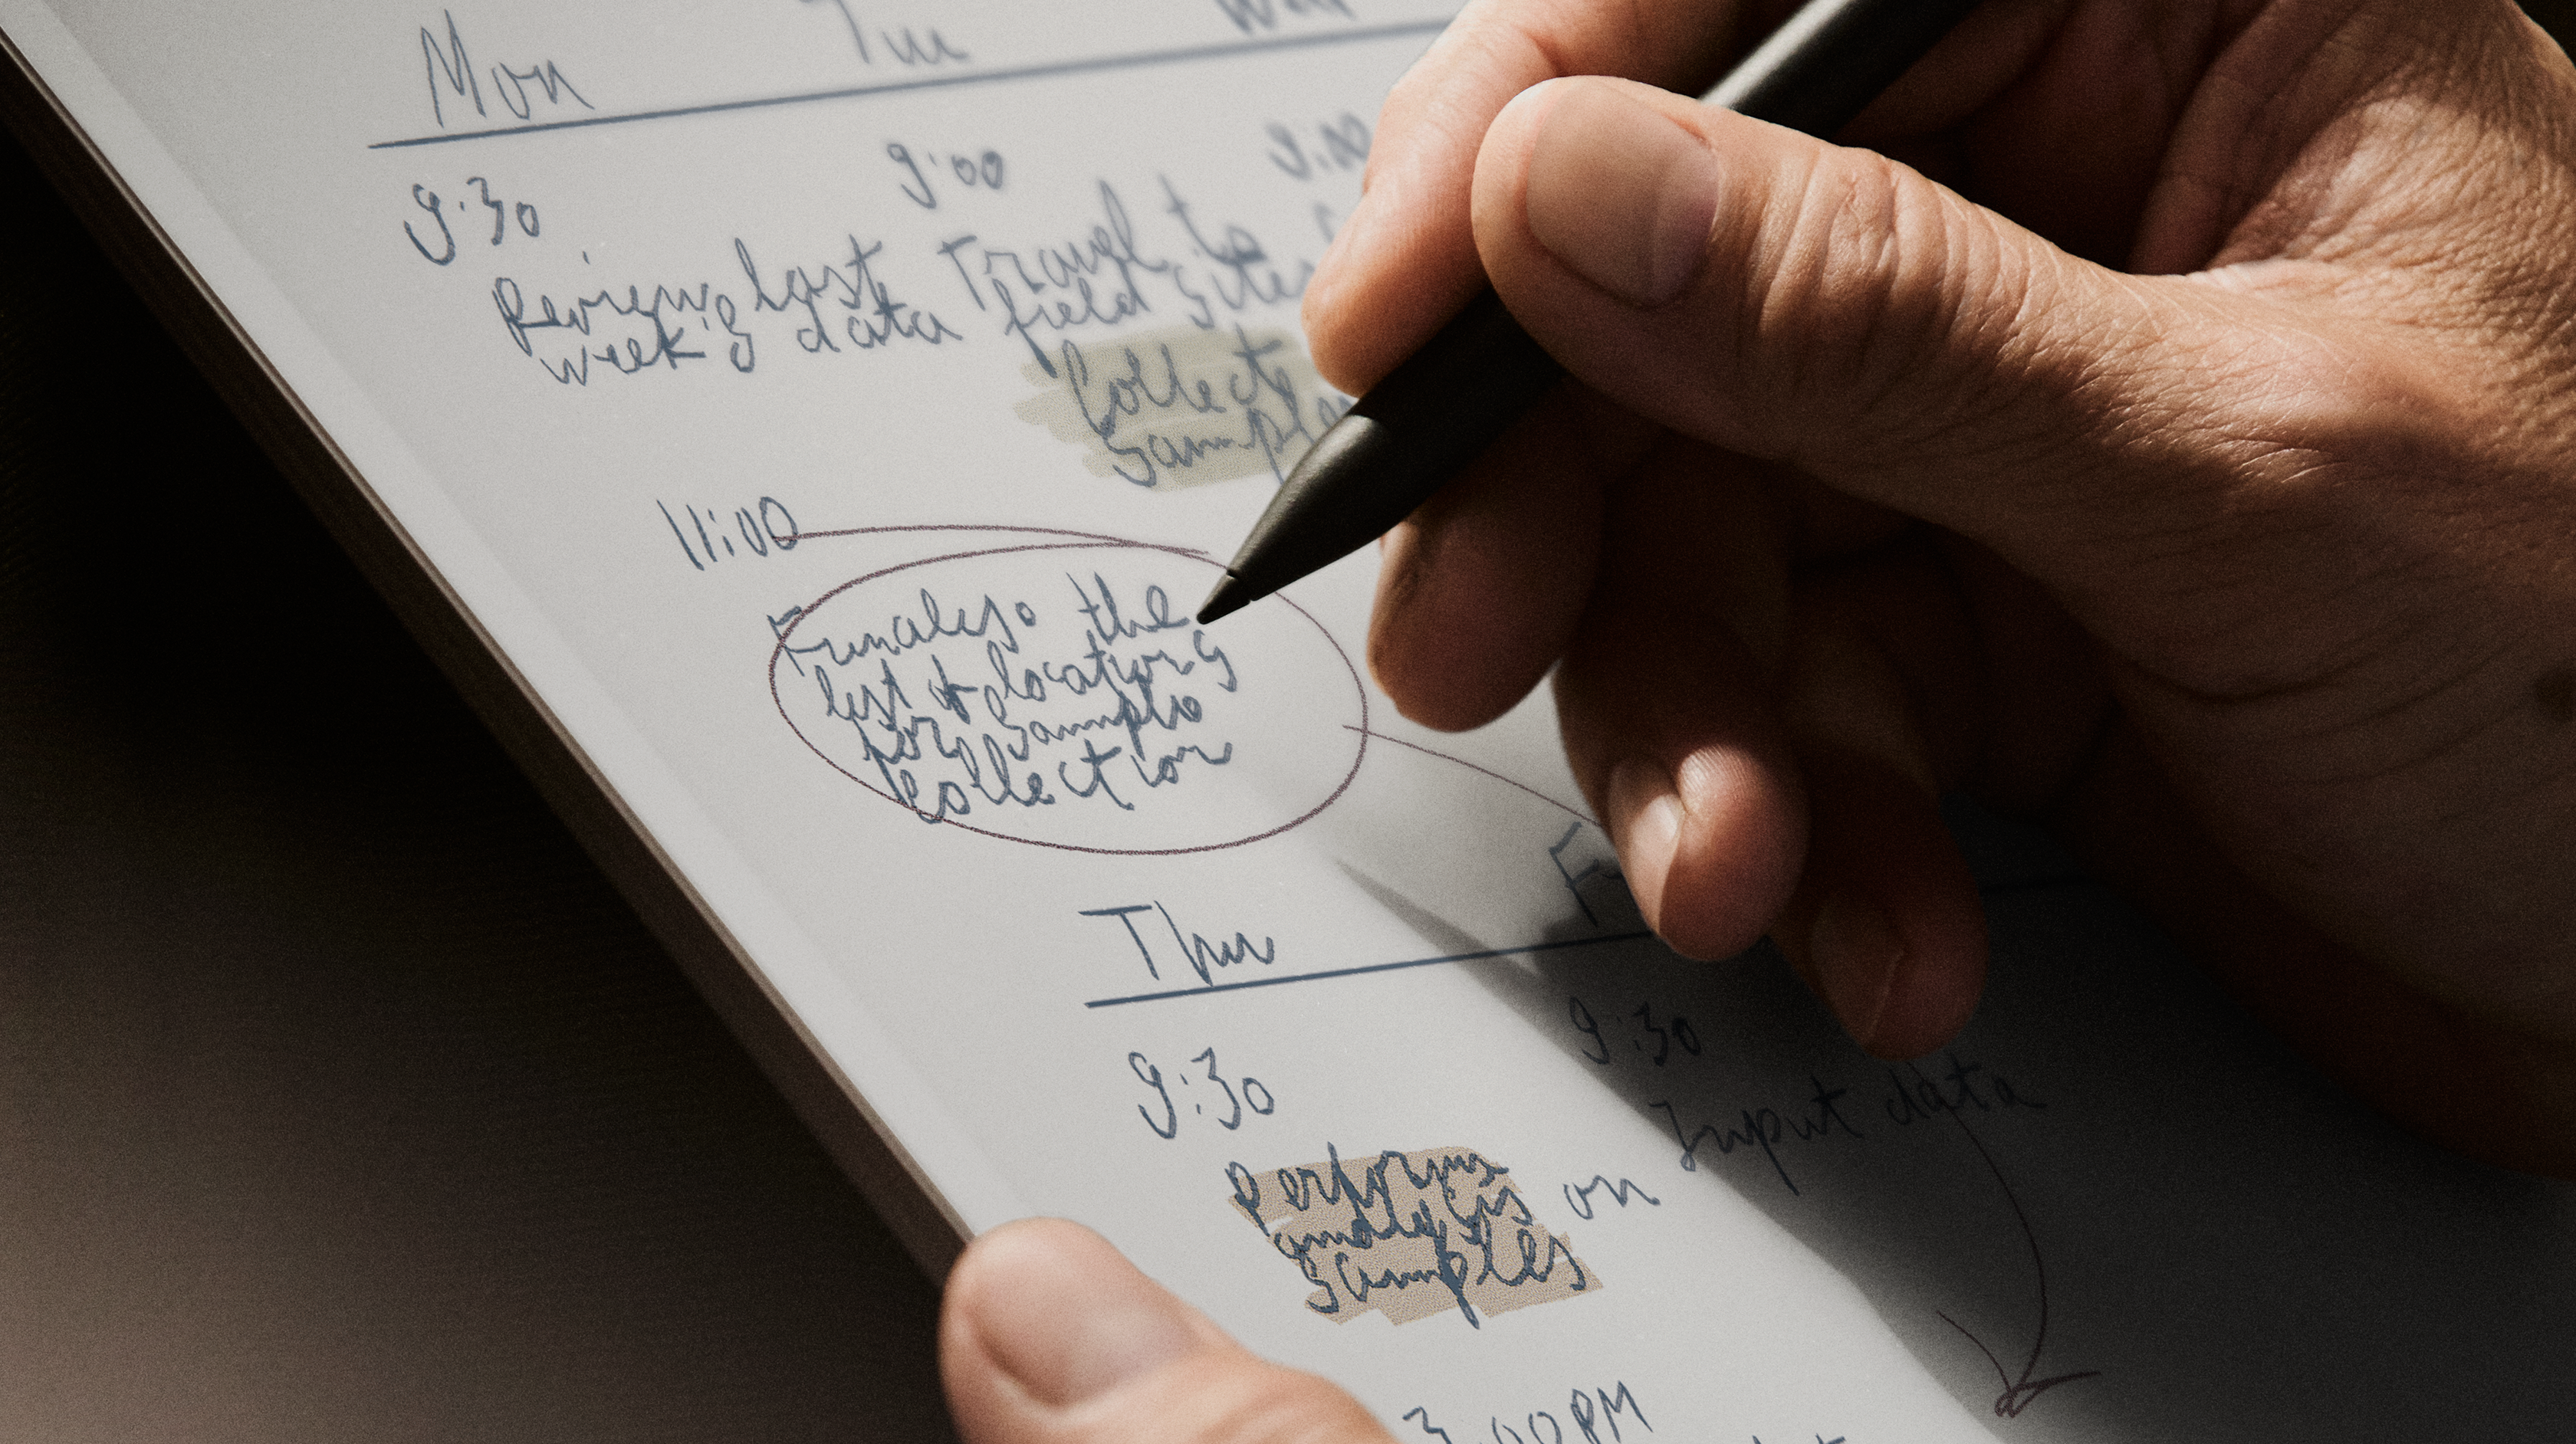 Mon Tue Wed
9:30 9:00 9:00
Review last Travel to
week's data field sites
Collect
Samples
11:00
Finalize the
list of locations
for sample
collection
Thur
9:30 9:30
Input data
Perform
analysis on
samples
3:00PM